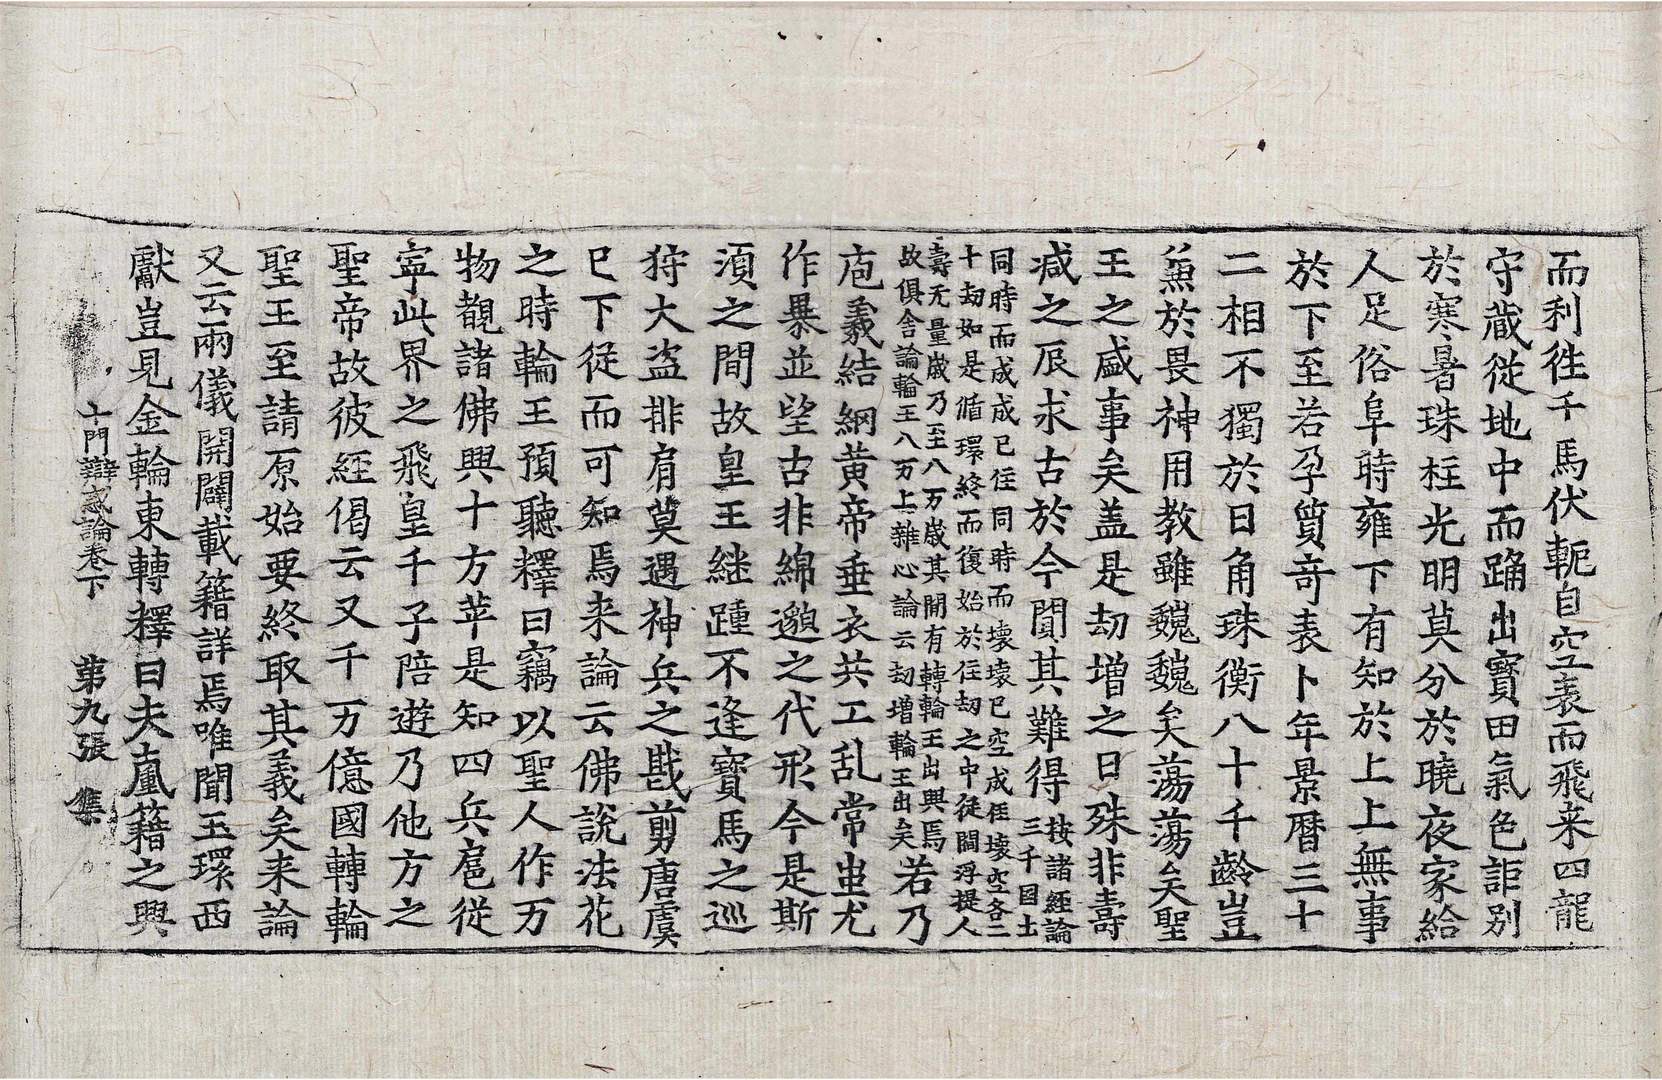 而利徃千馬伏軛自空表而飛来四龍
守蔵従地中而踊出寳田氣色詎别
於寒暑珠柱光明莫分於曉夜家給
人足俗阜時雍下有知於上上無事
於下至若孕質竒表卜年景曆三十
二相不獨於日角珠衡八十千齡豈
𠔥於畏神用教雖巍巍矣蕩蕩矣聖
王之盛事矣盖是劫增之日殊非壽
减之辰求古於今聞其難得按諸經論
三千国土
同時而成成已住同時而壞壞已空成住壞空各二
十劫如是循環終而復始於住劫之中従閻浮提人
壽无量歲乃至八万歲其閒有轉輪王出興焉
故俱舍論輪王八万上雜心論云劫增輪王出矣若乃
庖羲結綱黄帝垂衣共工乱常蚩尤
作暴並望古非綿邈之代形今是斯
湏之間故皇王継踵不逢寳馬之巡
狩大盗排肩莫遇神兵之戡剪唐虞
已下従而可知焉来論云佛說法花
之時輪王預聽釋曰竊以聖人作万
物覩諸佛興十方萃是知四兵扈従
寧此界之飛皇千子陪遊乃他方之
聖帝故彼経偈云又千万億國轉輪
聖王至請原始要終取其義矣来論
又云兩儀開闢載籍詳焉唯聞玉環西
獻豈見金輪東轉釋曰夫籍之興
十門辯惑論卷下 第九張 集